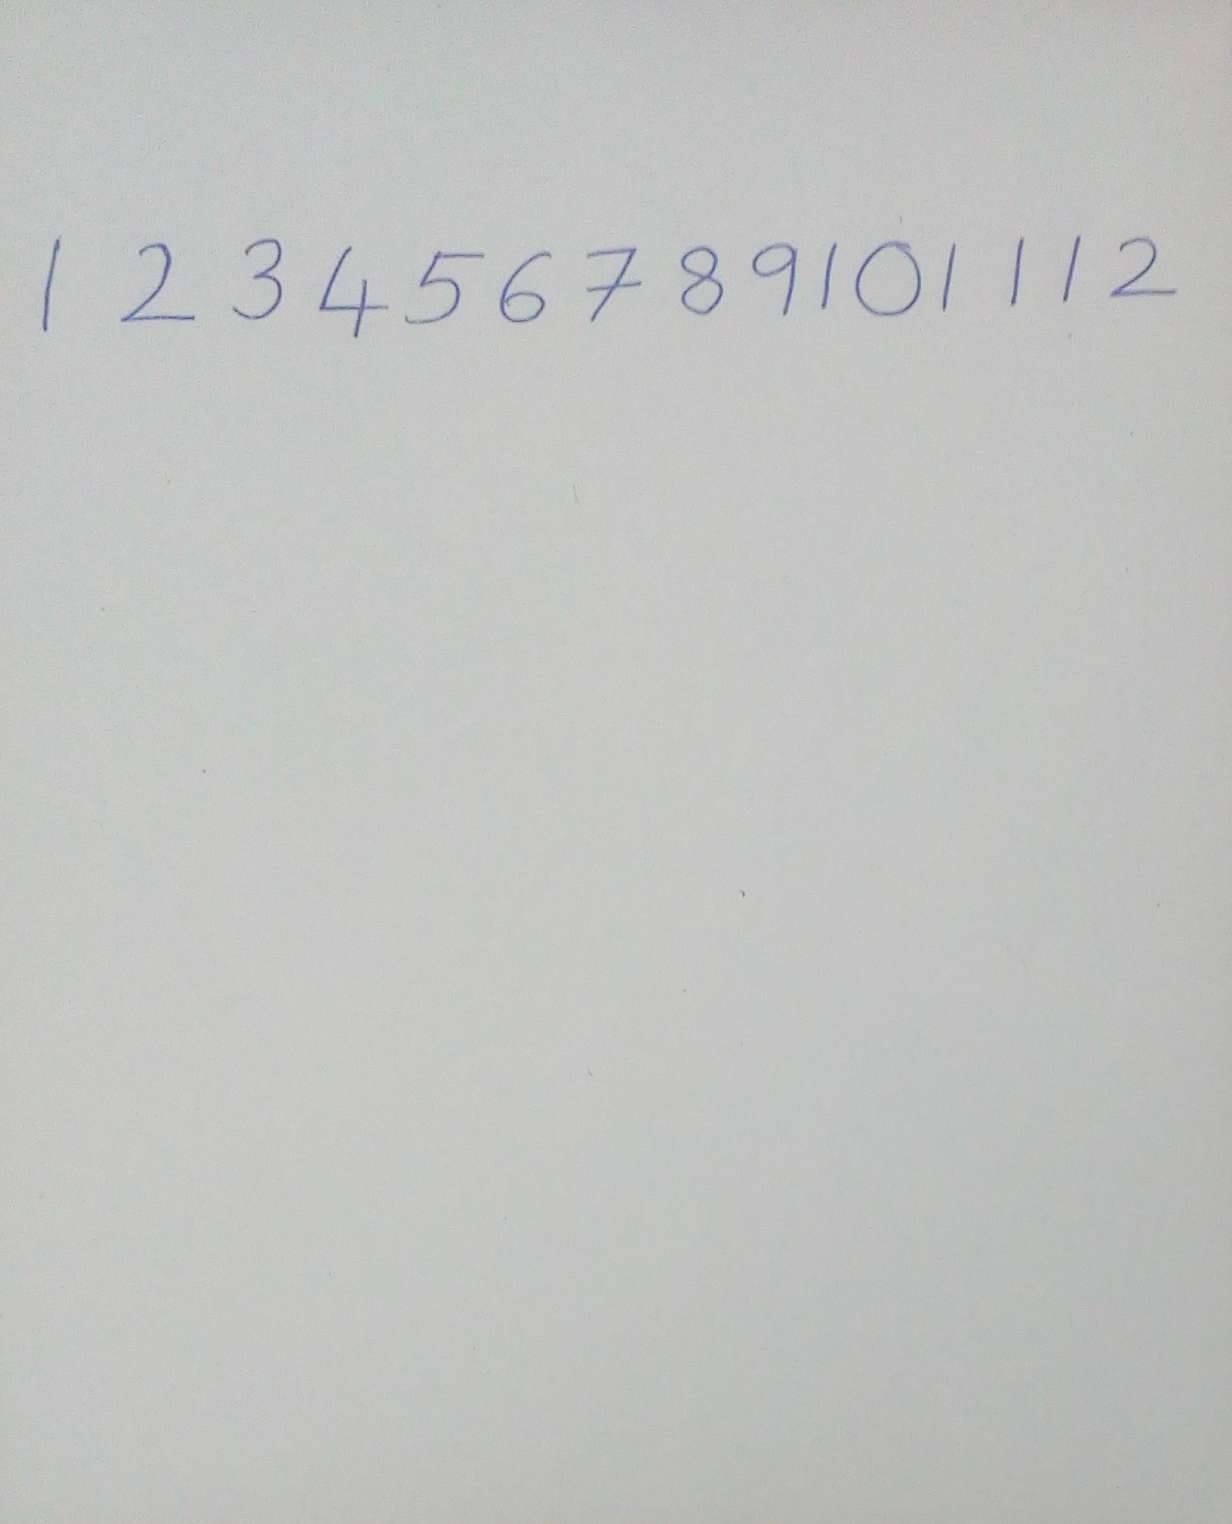 1 2 3 4 5 6 7 8 9 10 11 12